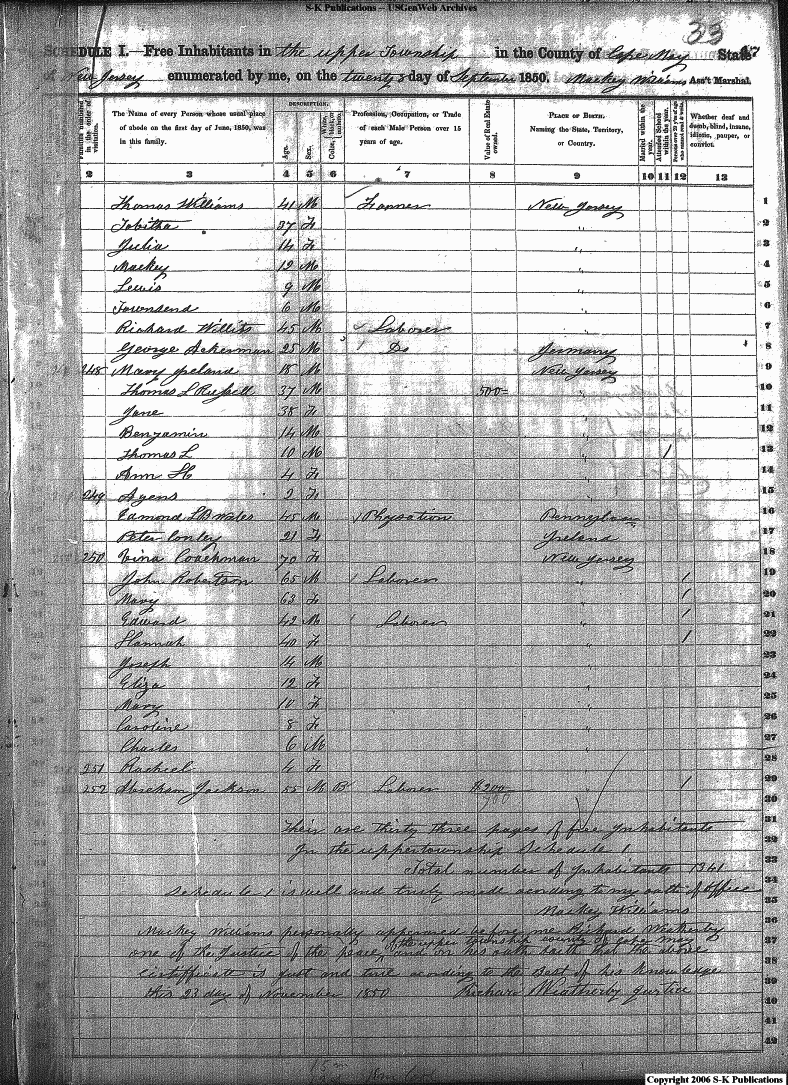 S-K Publications – USGenWeb Archives
33
SCHEDULE I.—Free Inhabitants in the upper Township in the County of Cape May State
of New Jersey enumerated by me, on the twenty 8 day of September 1850. Mackey Williams Ass't Marshal.
DESCRIPTION.
The Name of every Person whose usual place of abode on the first day of June, 1850, was in this family.
Age.
Sex.
Profession, Occupation, or Trade of each Male Person over 15 years of age.
Value of Real Estate owned.
PLACE OF BIRTH. Naming the State, Territory, or Country.
Married within the year.
Attended School within the year.
Whether deaf and dumb, blind, insane, idiotic, pauper, or convict.
2 3 4 5 6 7 8 9 10 11 12 13
Thomas Williams 41 M Farmer New Jersey 1
Tabitha 37 F " 2
Julia 14 F " 3
Mackey 12 M " 4
Lewis 9 M " 5
Townsend 6 M " 6
Richard Willits 45 M Laborer " 7
George Ackerman 25 M Do Germany 8
248 Mary Ireland 18 M New Jersey 9
Thomas L Russell 37 M 500 " 10
Jane 38 F " 11
Benjamin 14 M " 12
Thomas L 10 M " 1 13
Ann H 4 F " 14
249 Ayens 2 F " 15
Edmond L B Wales 45 M Physation Pennsylvan 16
Peter Conley 21 F Ireland 17
250 Vina Coachman 70 F New Jersey 18
John Robertson 65 M Laborer " 1 19
Mary 63 F " 1 20
Edward 42 M Laborer " 1 21
Hannah 40 F " 1 22
Joseph 14 M " 23
Eliza 12 F " 24
Mary 10 F " 25
Caroline 8 F " 26
Charles 6 M " 27
251 Racheel 4 F " 28
252 Abraham Jackson 55 M B Laborer $200 " 1 29
30
Their are thirty three pages of free Inhabitants 31
In the uppertownship Schedule 1 32
Total number of Inhabitants 1341 33
Schedule 1 is well and truly made acording to my oath of office 34
Mackey Williams 35
Mackey Williams personally appeared before me Richard Weatherby 36
of the upper township county of cape may
one of the Justice of the peace and on his oath saith that the above 37
Certifficate is just and true acording to the Best of his knowledge 38
this 23 day of November 1850 Richard Weatherby Justice 39
40
41
42
Copyright 2006 S-K Publications